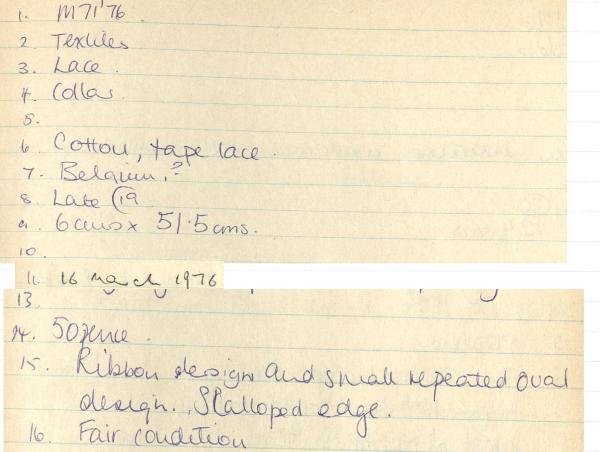 1. M71'76
2. Textiles
3. Lace.
4. Collar.
5.
6. Cotton, tape lace.
7. Belgium.?
8. Late C19
9. 6cms x 51.5cms.
10.
11. 16 March 1976
13.
14. 50pence.
15. Ribbon design and small repeated oval
design. Scalloped edge.
16. Fair condition